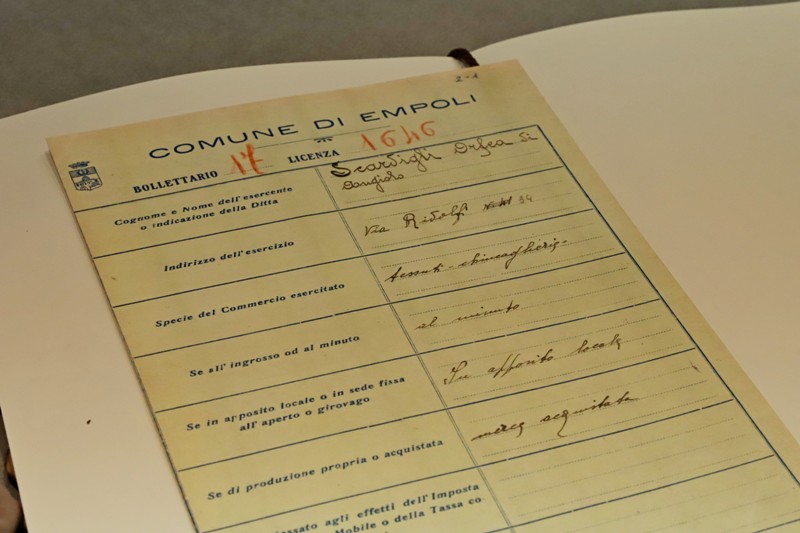 COMUNE DI EMPOLI
BOLLETTARIO 17 LICENZA 1646
Cognome e Nome dell'esercente
o indicazione della Ditta
Scardigli Orfea di
Dangiolo
Indirizzo dell'esercizio
Via Ridolfi 34
Specie del Commercio esercitato
tessuti - chincaglierie
Se all' ingrosso od al minuto
al minuto
Se in apposito locale o in sede fissa
all' aperto o girovago
In apposito locale
Se di produzione propria o acquistata
merce acquistata
lassato agli effetti dell'Imposta
Mobile o della Tassa co